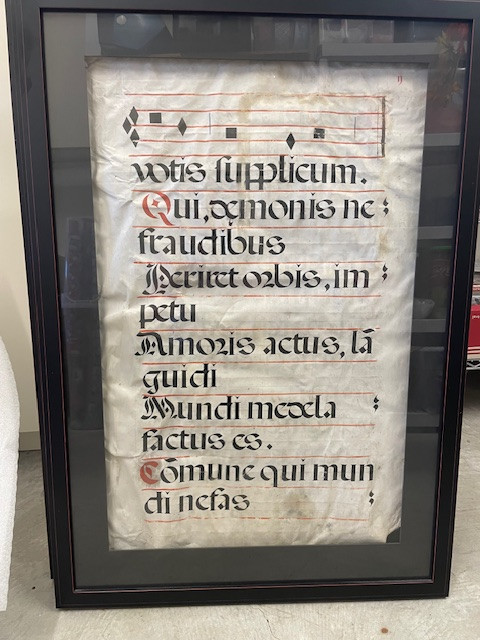 votis ſupplicum.
Qui, dæmonis ne
fraudibus
Periret orbis, im
petu
Amoris actus, lā
guidi
Mundi medela
factus es.
Cōmune qui mun
di nefas